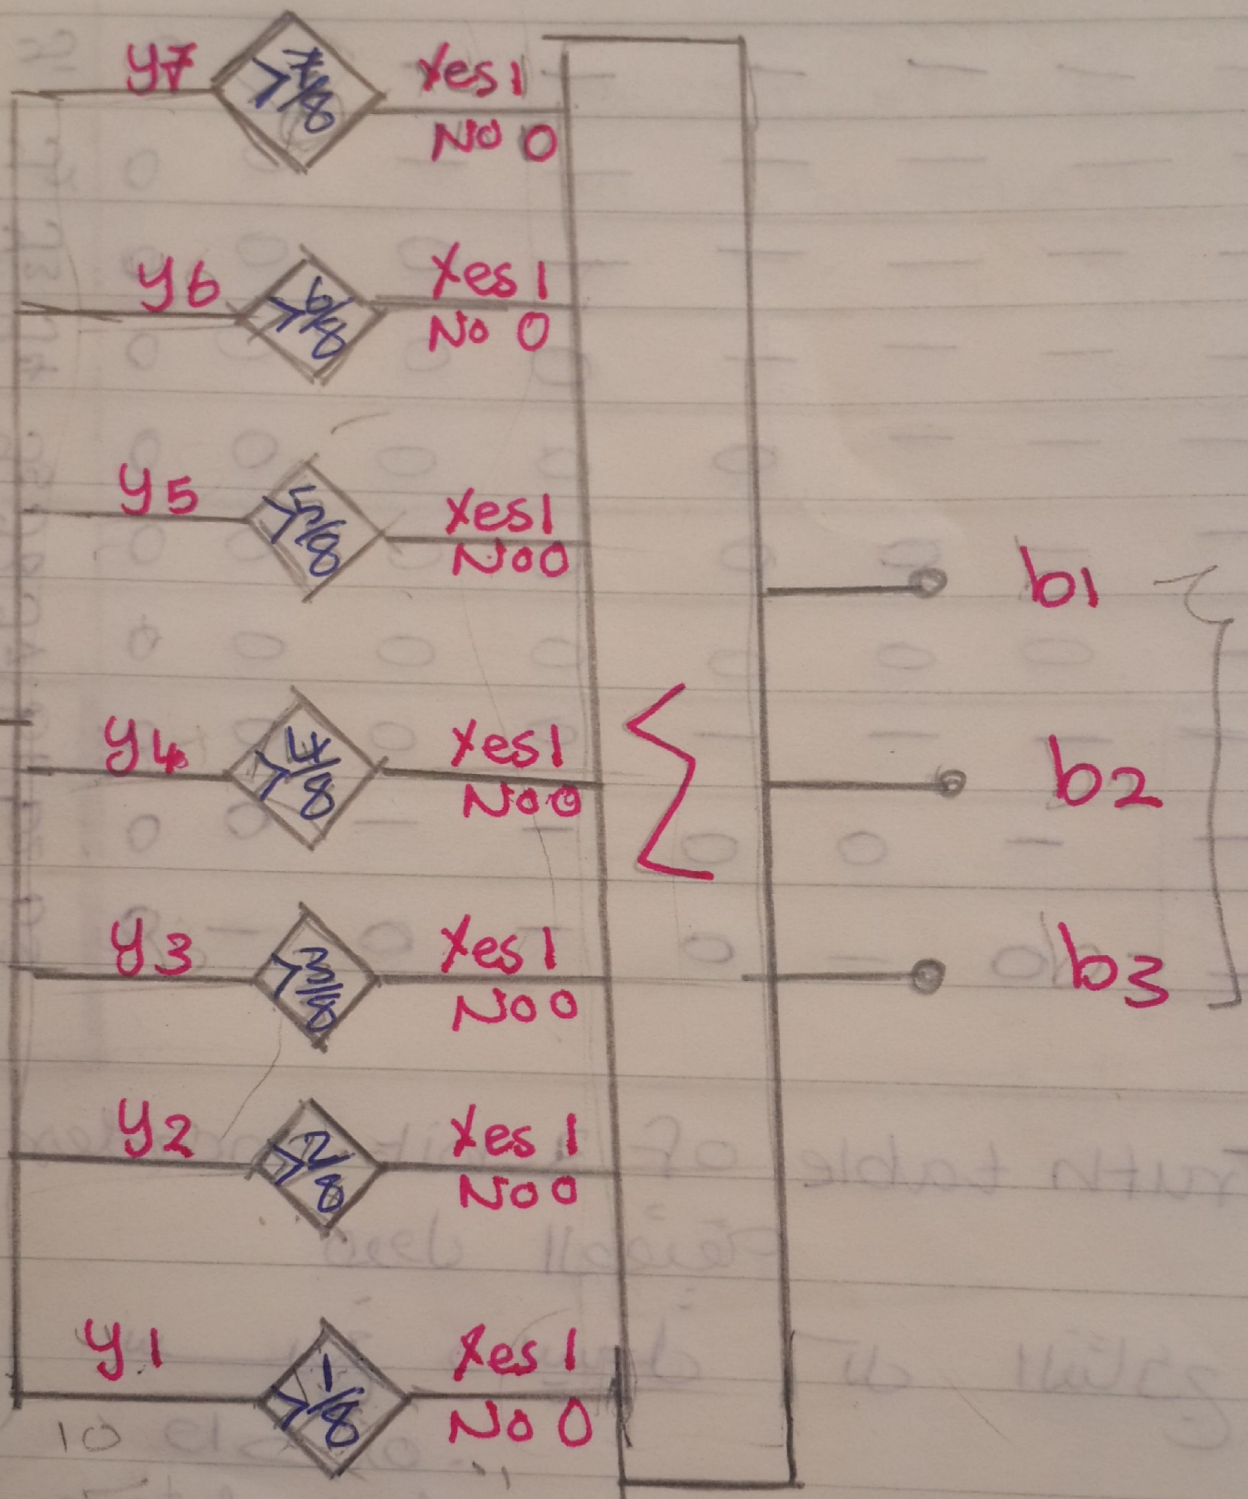 y7 >7/8 Yes 1
No 0
y6 >6/8 Yes 1
No 0
y5 >5/8 Yes 1
No 0
b1
y4 >4/8 Yes 1
No 0
b2
y3 >3/8 Yes 1
No 0
b3
y2 >2/8 Yes 1
No 0
y1 >1/8 Yes 1
No 0